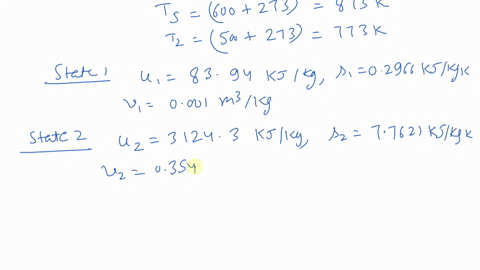 T_s = (600 + 273) = 873 K
T_2 = (500 + 273) = 773 K
State 1 u_1 = 83.94 KJ/kg, s_1 = 0.2966 KJ/kgK
v_1 = 0.001 m³/kg
State 2 u_2 = 3124.3 KJ/kg, s_2 = 7.7621 KJ/kgK
v_2 = 0.354